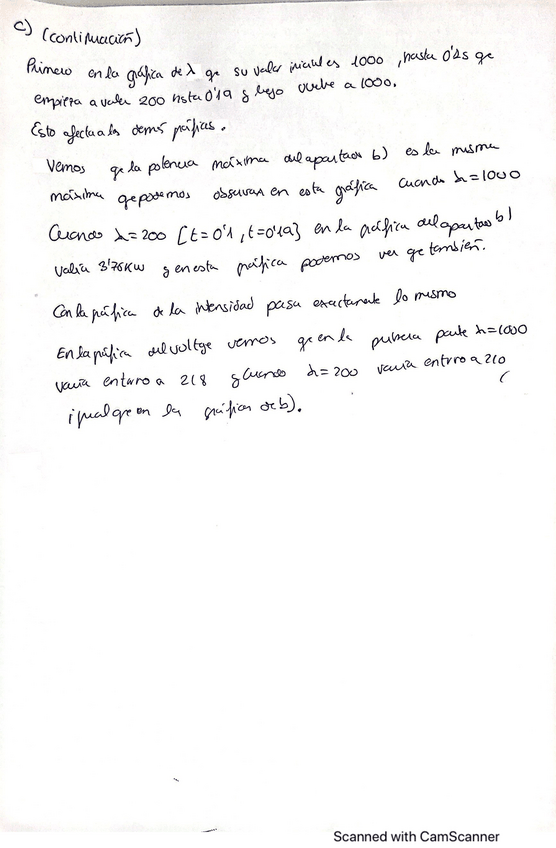 c) (continuación)
Primero en la gráfica de λ qe su valor inicial es 1000, hasta 0'1s qe
empieza a valer 200 hsta 0'19 y luego vuelve a 1000.
Esto afecta a las demás gráficas.
Vemos qe la potencia máxima del apartado b) es la misma
máxima qe podemos observar en esta gráfica cuando λ=1000
Cuando λ=200 [t=0'1, t=0'19] en la gráfica del apartado b)
valía 3'76KW y en esta gráfica podemos ver qe también.
Con la gráfica de la intensidad pasa exactamente lo mismo
En la gráfica del voltge vemos qe en la primera parte λ=1000
varía entorno a 218 y cuando λ=200 varía entorno a 210
igual qe en la gráfica de b).
Scanned with CamScanner